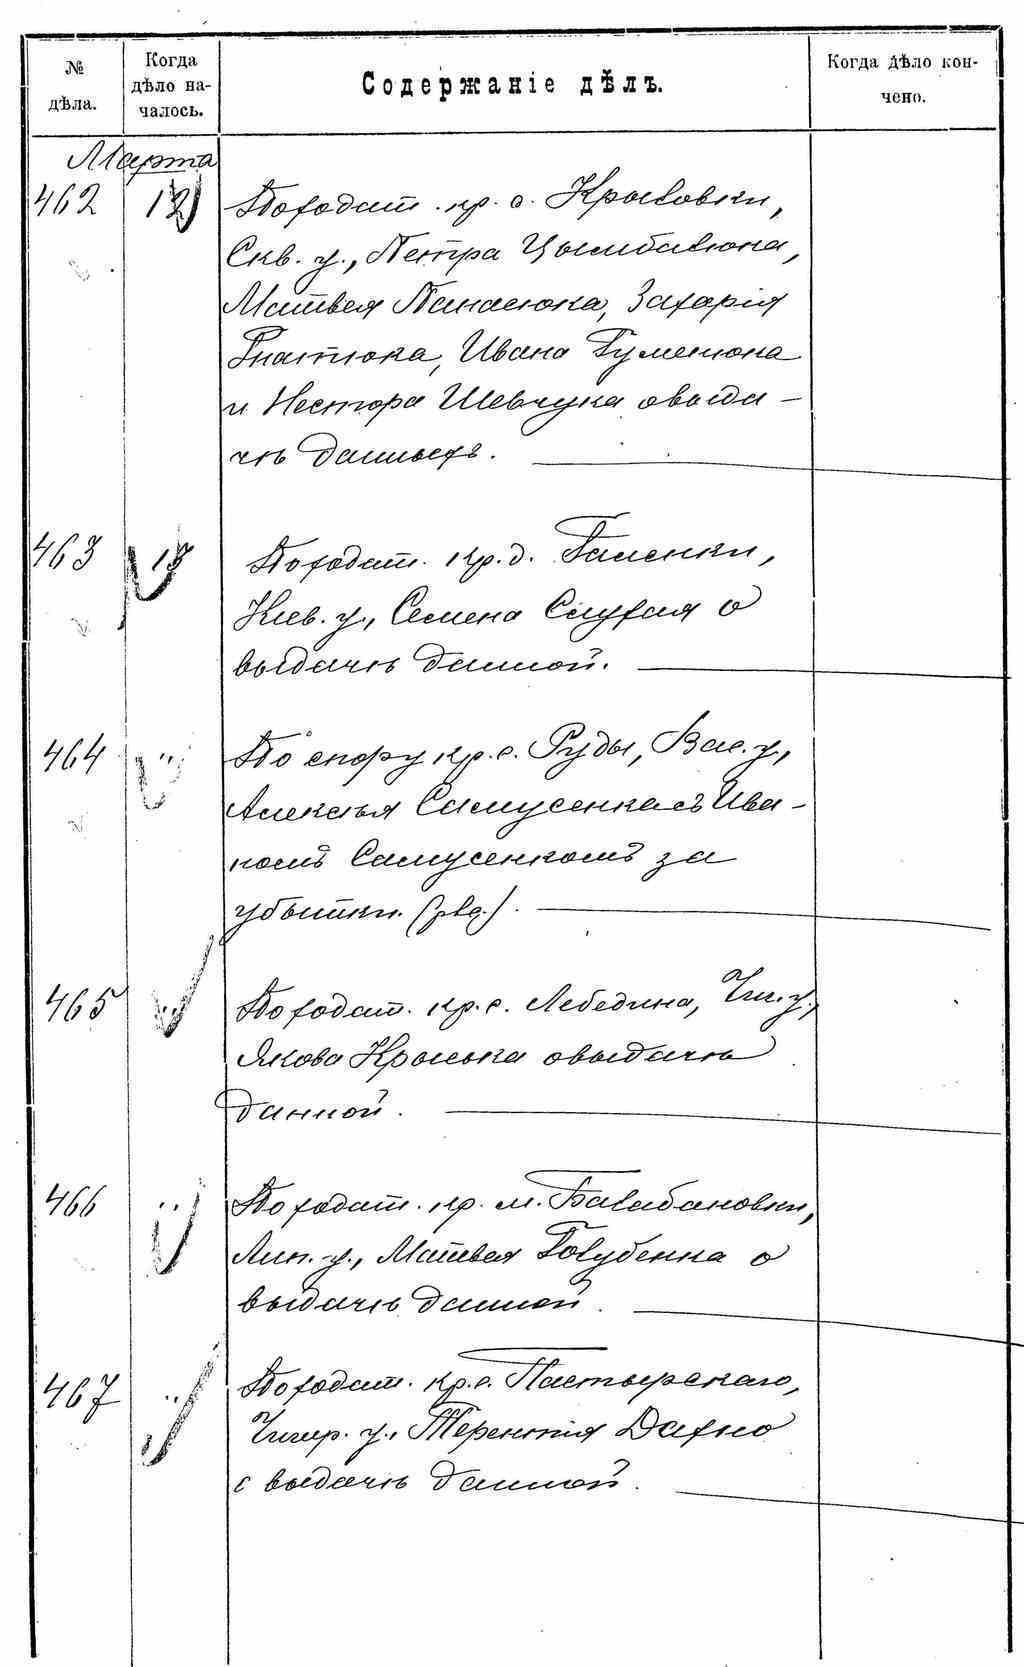 № дѣла.
Когда дѣло началось.
Содержаніе дѣлъ.
Когда дѣло кончено.
Марта
462 12 По ходат. кр. с. Крыловки,
Скв. у., Петра Цымбалюка,
Матвея Панасюка, Захарія
Гнатюка, Ивана Гуменюка
и Нестора Шевчука о выда-
чѣ данныхъ.
463 13 По ходат. кр. д. Галенки,
Кіев. у., Семена Слухая о
выдачѣ данной.
464 " По спору кр. с. Руды, Вас. у.,
Алексѣя Самусенка съ Ива-
номъ Самусенкомъ за
убытки.
465 " По ходат. кр. с. Лебедина, Чиг. у.,
Якова Крыська о выдачѣ
данной.
466 " По ходат. кр. м. Балабановки,
Лип. у., Матвея Голубенка о
выдачѣ данной.
467 " По ходат. кр. с. Пастырскаго,
Чигир. у., Терентія Дахно
о выдачѣ данной.